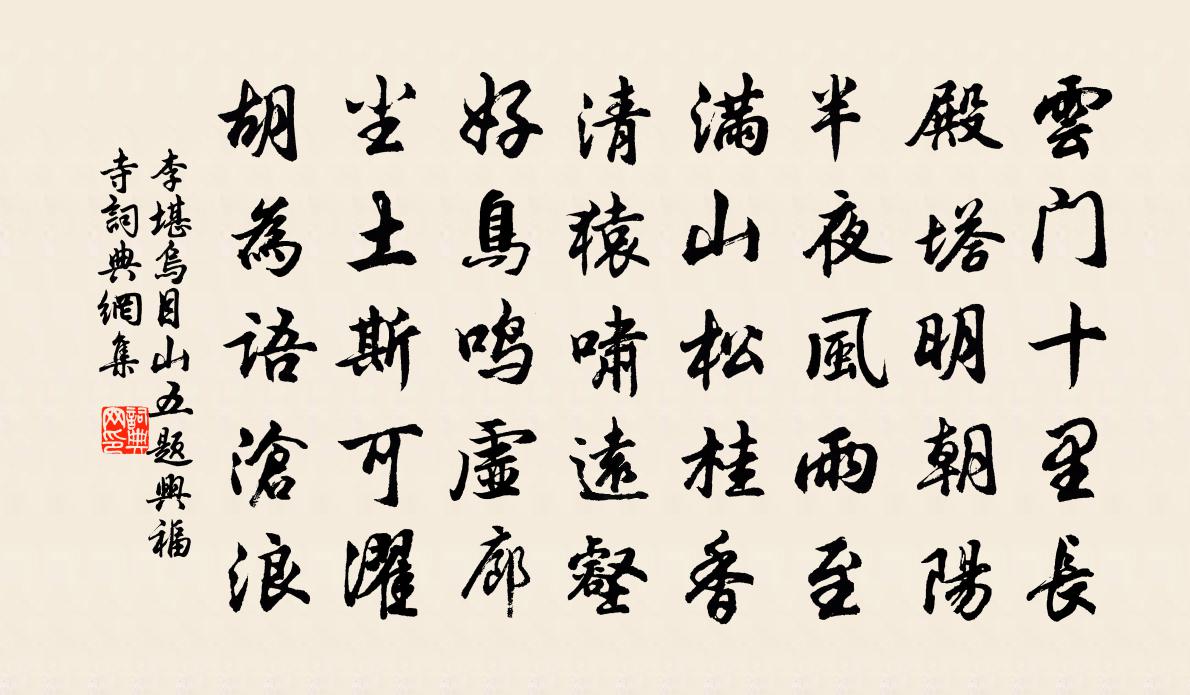 雲门十里長
殿塔明朝陽
半夜風雨至
满山松桂香
清猿啸遠壑
好鳥鸣虚廊
尘土斯可濯
胡為语滄浪
李堪烏目山五题興福
寺詞典網集
詞典网印